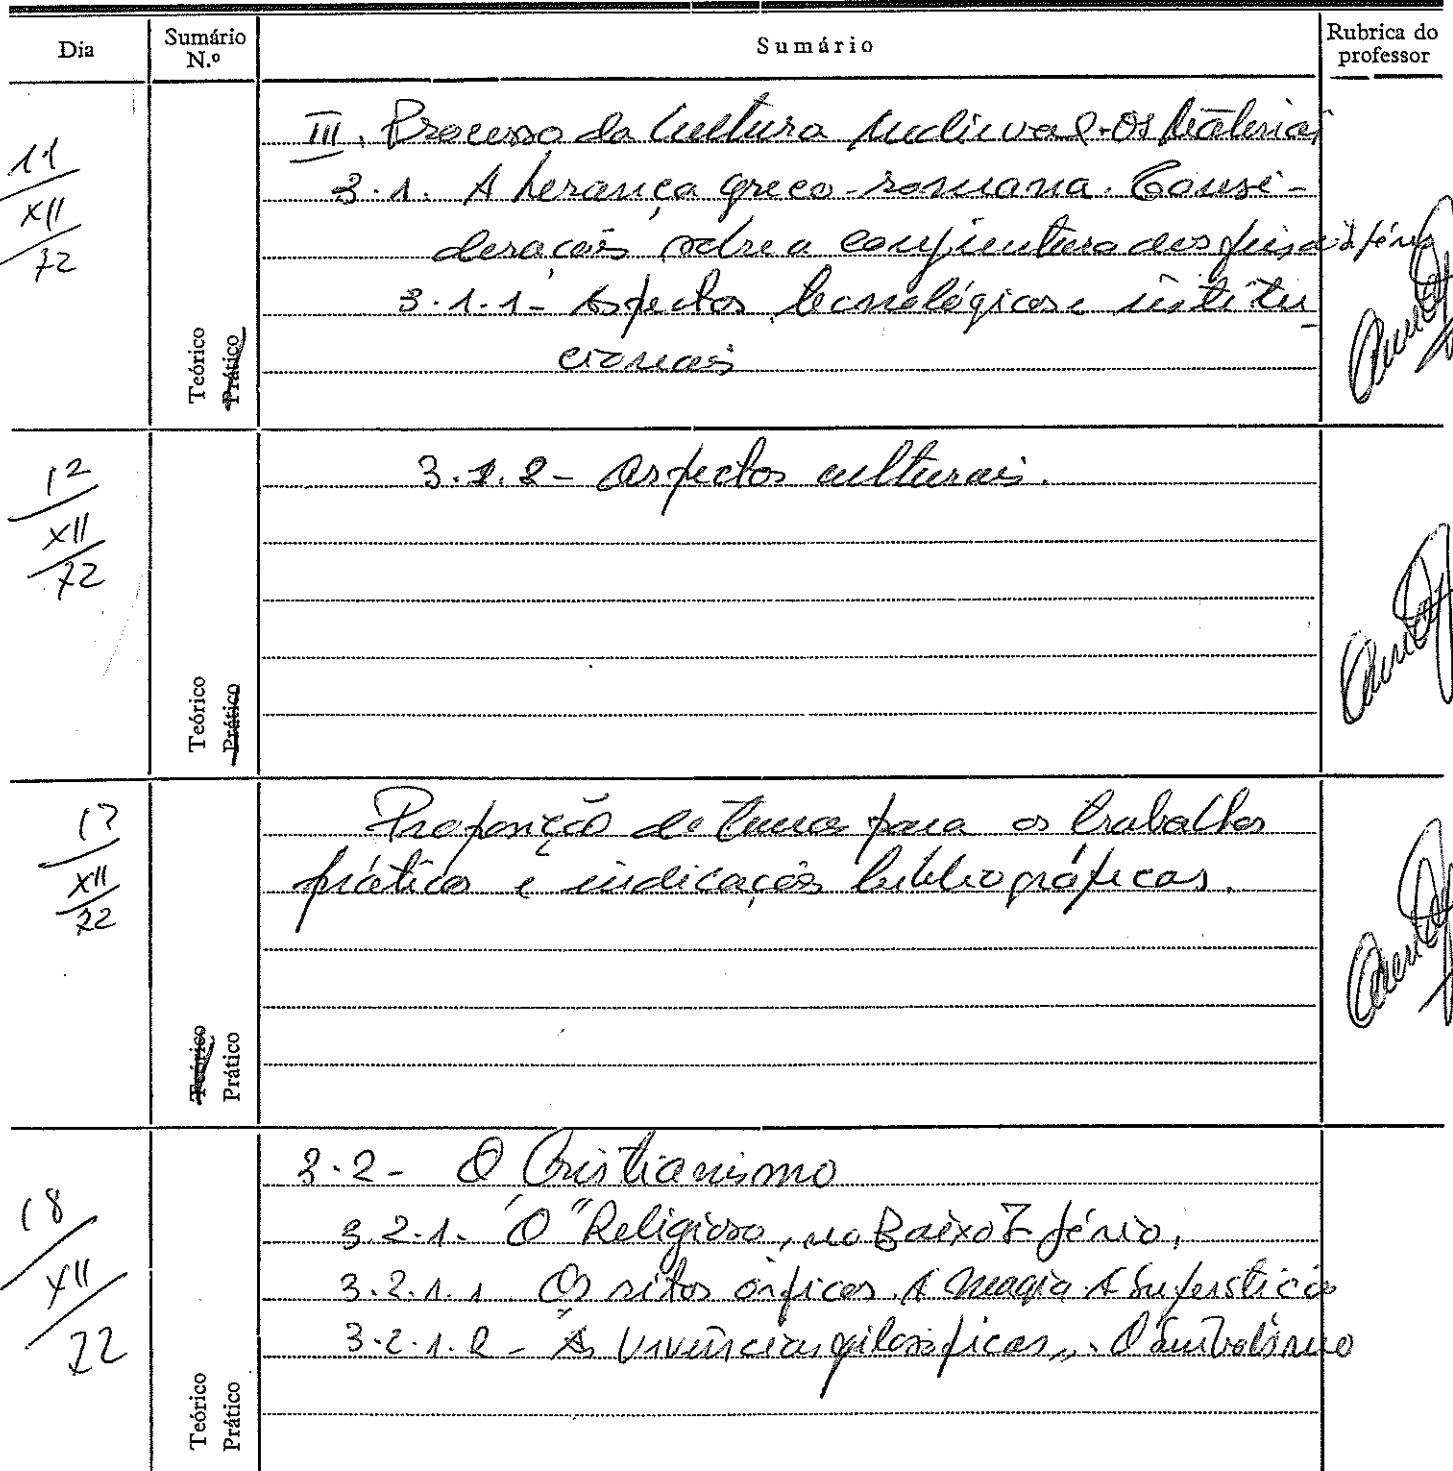 Dia
Sumário N.º
Sumário
Rubrica do professor
11
XII
72
Teórico
Prático
III. Processo da Cultura Medieval - Os Materiais
3.1. A herança greco-romana. Consi-
derações sobre a conjuntura dos
3.1.1 - Aspectos tecnológicos e institu-
cionais
12
XII
72
Teórico
Prático
3.1.2 - Aspectos culturais.
13
XII
72
Teórico
Prático
Proposição de temas para os trabalhos
práticos e indicações bibliográficas.
18
XII
72
Teórico
Prático
3.2 - O Cristianismo
3.2.1. O "Religioso" no Baixo Império.
3.2.1.1. Os ritos órficos. A Magia. A Superstição
3.2.1.2 - As vivências filosóficas". O